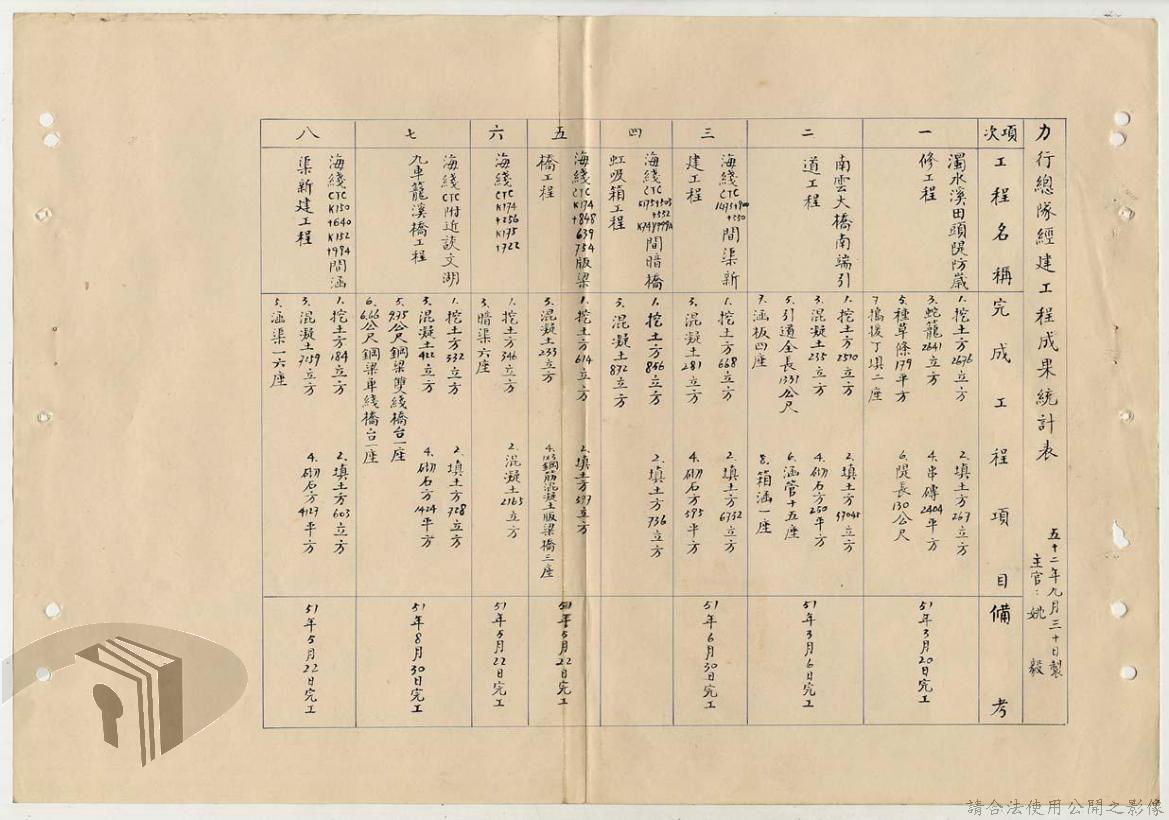 力行總隊經建工程成果統計表
五十二年九月三十日製
主官：姚毅
項次
工程名稱
完成工程項目
備考
一
濁水溪田頭隄防歲
修工程
1.挖土方2676立方
2.填土方267立方
3.蛇籠2641立方
4.串磚2404平方
5.種草條179平方
6.隄長130公尺
7.搗後丁填二座
51年3月20日完工
二
南雲大橋南端引
道工程
1.挖土方2510立方
2.填土方57045立方
3.混凝土235立方
4.砌石方250平方
5.引道全長1331公尺
6.涵管十五座
7.涵板四座
8.箱涵一座
51年3月6日完工
三
海綫CTC
間渠新
建工程
1.挖土方668立方
2.填土方6752立方
3.混凝土281立方
4.砌石方595平方
51年6月30日完工
四
海綫CTC
間暗橋
虹吸箱工程
1.挖土方856立方
2.填土方736立方
3.混凝土872立方
五
海綫CTC
K174
+848
639
754版梁
橋工程
1.挖土方614立方
2.填土方597立方
3.混凝土233立方
4.鋼筋混凝土版梁橋三座
51年5月22日完工
六
海綫CTC
K174
+256
K175
+722
1.挖土方346立方
2.混凝土2165立方
3.暗渠六座
51年5月22日完工
七
海綫CTC附近談文湖
九車籠溪橋工程
1.挖土方332立方
2.填土方728立方
3.混凝土422立方
4.砌石方1424平方
5.9.75公尺鋼梁雙綫橋台一座
6.6.66公尺鋼梁單綫橋台一座
51年8月30日完工
八
海綫CTC
K150
+640
K152
+994間涵
渠新建工程
1.挖土方184立方
2.填土方603立方
3.混凝土7259立方
4.砌石方4127平方
5.涵渠一六座
51年5月22日完工
請合法使用公開之影像